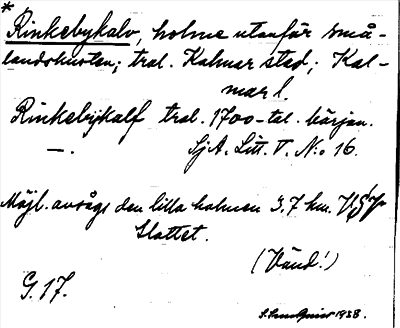 *
Rinkebykalv, holme utanför små-
landskusten; tral. Kalmar stad; Kal-
mar l.
Rinkebÿkalf tral. 1700-tal. början.
—. SjA. Litt. V. N:o 16.
Möjl. avsågs den lilla holmen 3,7 km.
Slottet.
(Vänd!)
G. 17.
1938.